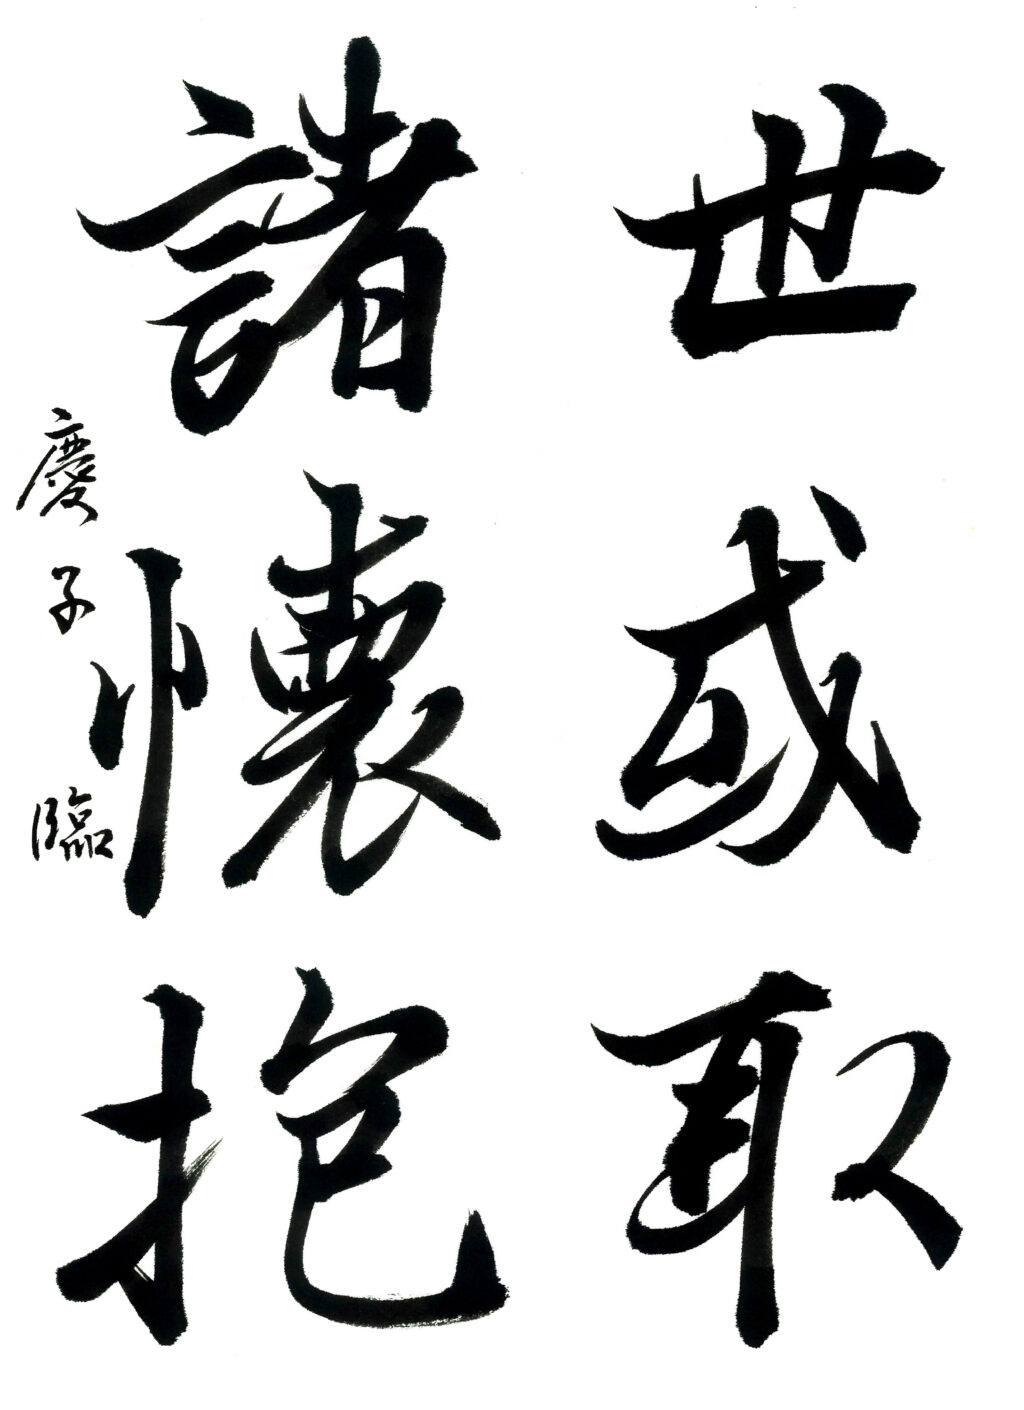 世或取
諸懐抱
慶子臨